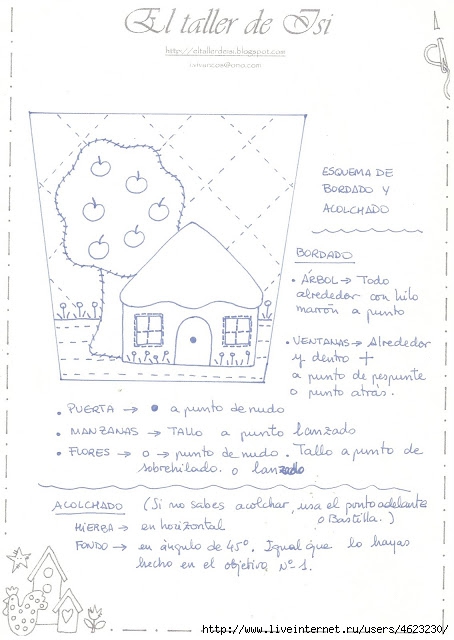 El taller de Isi
http://eltallerdeisi.blogspot.com
ESQUEMA DE
BORDADO Y
ACOLCHADO
BORDADO
• ÁRBOL → Todo
alrededor con hilo
marrón a punto
• VENTANAS → Alrededor
y dentro +
a punto de pespunte
o punto atrás.
• PUERTA → • a punto de nudo
• MANZANAS → TALLO a punto lanzado
• FLORES → o → punto de nudo. Tallo a punto de
sobrehilado. o lanzado
ACOLCHADO (Si no sabes acolchar, usa el punto adelante
o Bastilla.)
HIERBA → en horizontal
FONDO → en ángulo de 45º. Igual que lo hayas
hecho en el objetivo Nº 1.
http://www.liveinternet.ru/users/4623230/